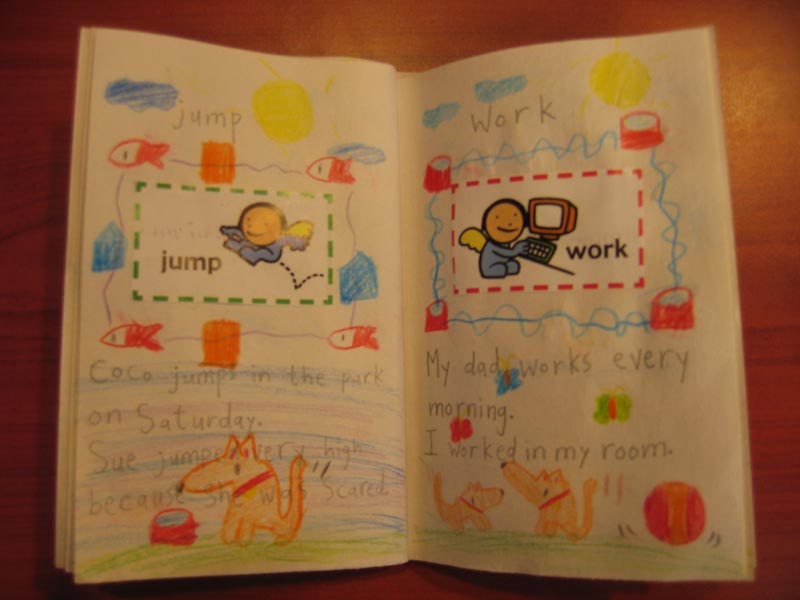 jump
jump
Coco jumps in the park
on Saturday.
Sue jumped very high
because she was scared.
Work
work
My dad works every
morning.
I worked in my room.